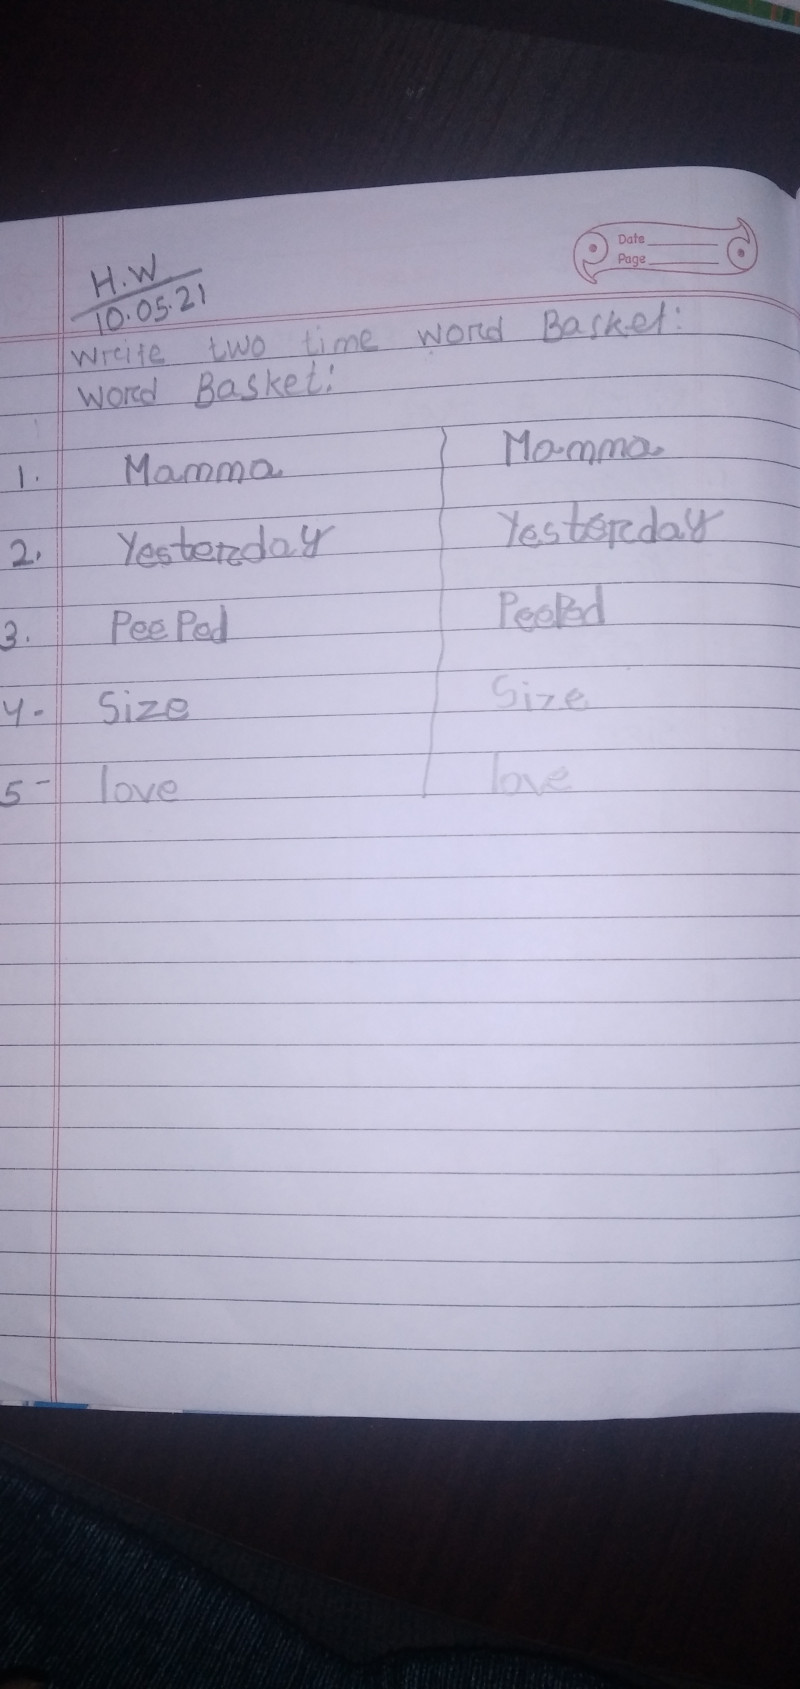 Date
Page
H.W
10.05.21
Write two time word Basket:
Word Basket:
1. Mamma Mamma
2. Yesterday Yesterday
3. PeePed PeePed
4- Size Size
5- love love